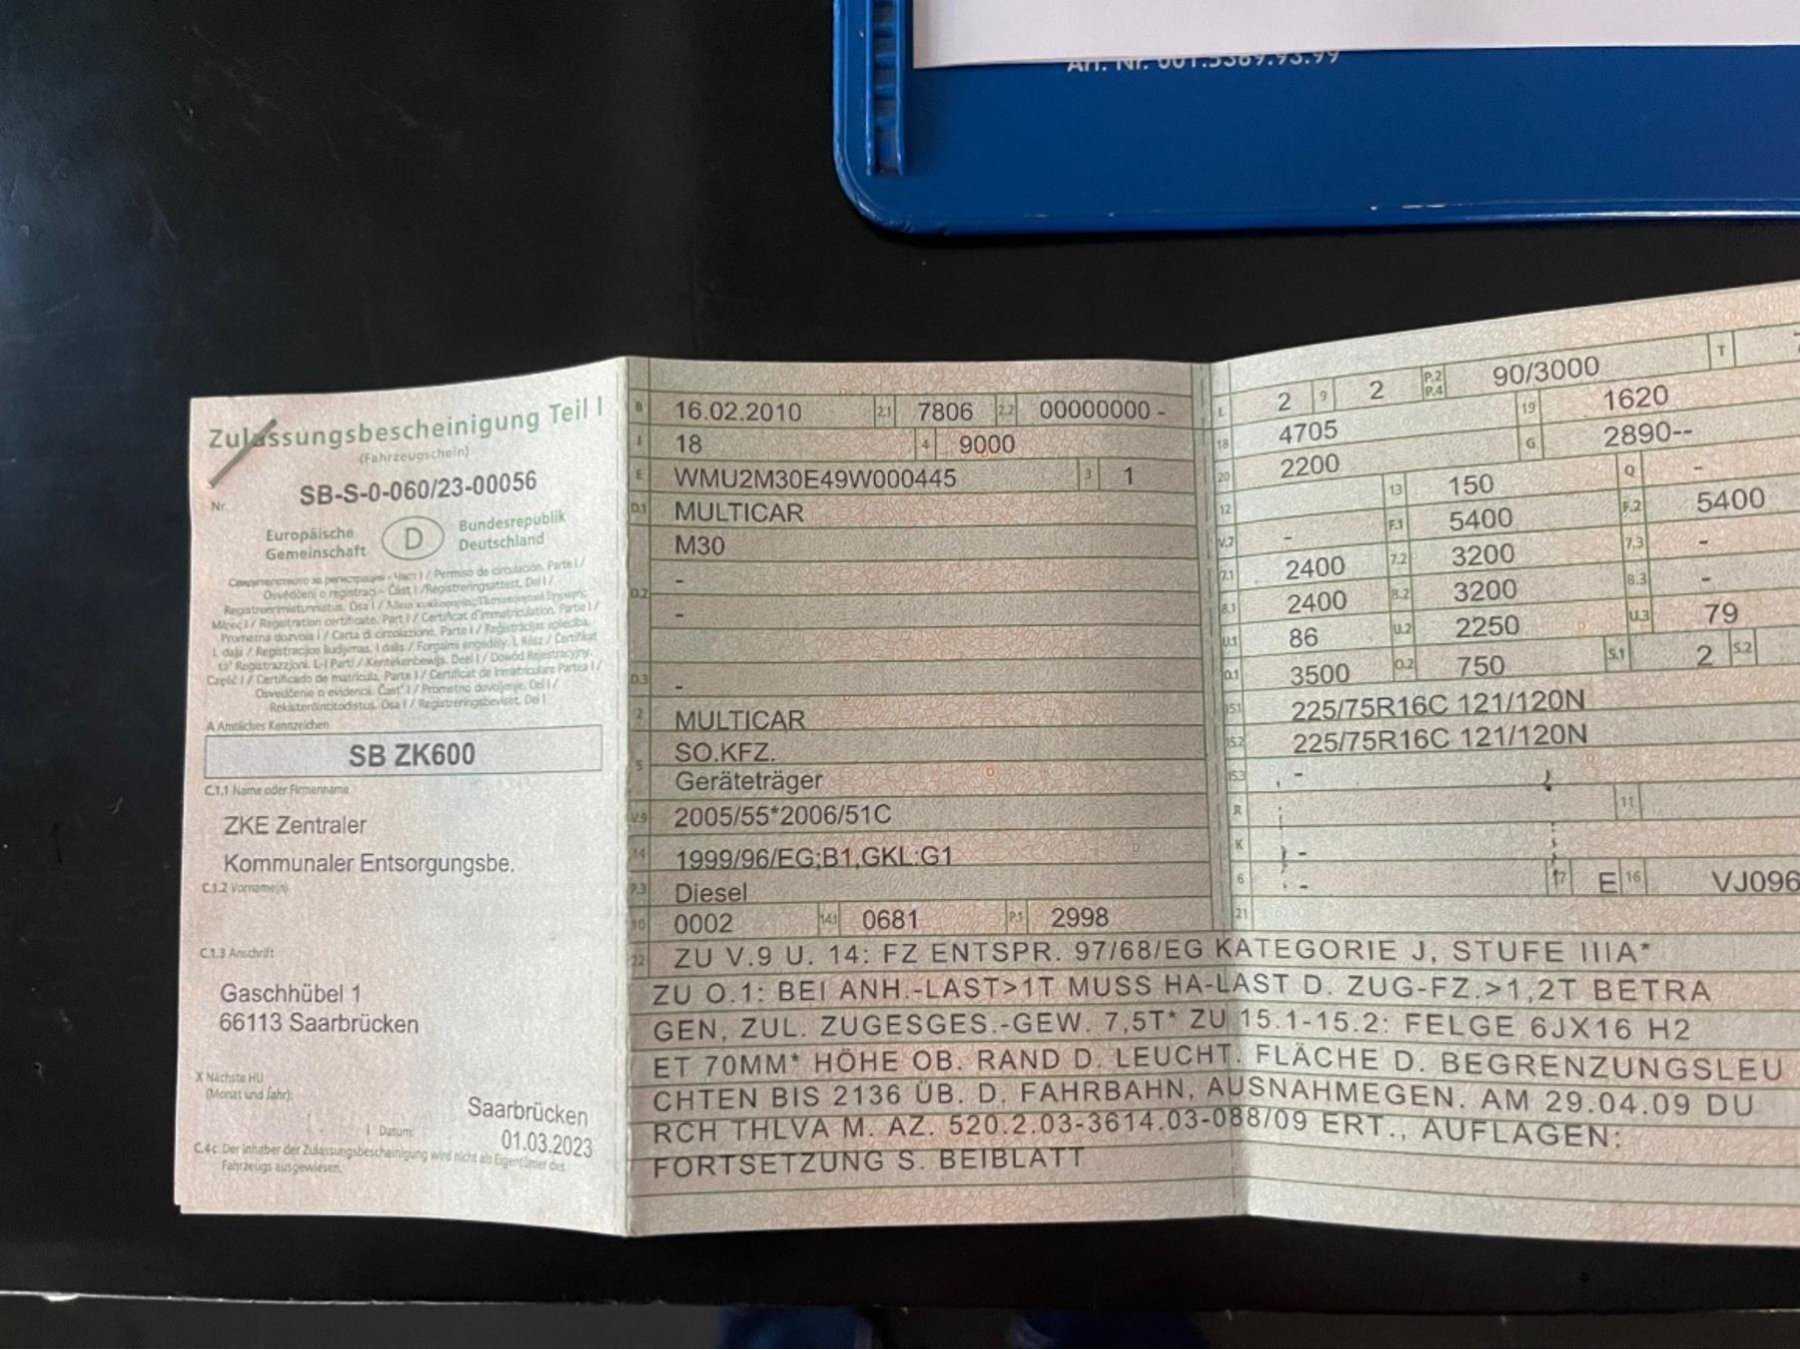 Art. Nr. 001.5389.93.99
Zulassungsbescheinigung Teil I
(Fahrzeugschein)
Nr. SB-S-0-060/23-00056
Europäische Gemeinschaft D Bundesrepublik Deutschland
A Amtliches Kennzeichen
SB ZK600
C.1.1 Name oder Firmenname
ZKE Zentraler
Kommunaler Entsorgungsbe.
C.1.2 Vorname(n)
C.1.3 Anschrift
Gaschhübel 1
66113 Saarbrücken
X Nächste HU
(Monat und Jahr):
Saarbrücken
Datum: 01.03.2023
C.4c Der Inhaber der Zulassungsbescheinigung wird nicht als Eigentümer des
Fahrzeugs ausgewiesen.
B 16.02.2010 2.1 7806 2.2 00000000 -
J 18 4 9000
E WMU2M30E49W000445 3 1
D.1 MULTICAR
M30
-
D.2 -
D.3 -
2 MULTICAR
5 SO.KFZ.
Geräteträger
V.9 2005/55*2006/51C
14 1999/96/EG;B1,GKL:G1
P.3 Diesel
10 0002 14.1 0681 P.1 2998
L 2 9 2 P.2 P.4 90/3000 T
18 4705 19 1620
20 2200 G 2890--
12 - 13 150 Q -
V.7 - F.1 5400 F.2 5400
7.1 2400 7.2 3200 7.3 -
8.1 2400 8.2 3200 8.3 -
U.1 86 U.2 2250 U.3 79
O.1 3500 O.2 750 S.1 2 S.2
15.1 225/75R16C 121/120N
15.2 225/75R16C 121/120N
15.3 -
R 11
K -
6 - 17 E 16 VJ096
21
22 ZU V.9 U. 14: FZ ENTSPR. 97/68/EG KATEGORIE J, STUFE IIIA*
ZU O.1: BEI ANH.-LAST>1T MUSS HA-LAST D. ZUG-FZ.>1,2T BETRA
GEN, ZUL. ZUGESGES.-GEW. 7,5T* ZU 15.1-15.2: FELGE 6JX16 H2
ET 70MM* HÖHE OB. RAND D. LEUCHT. FLÄCHE D. BEGRENZUNGSLEU
CHTEN BIS 2136 ÜB. D. FAHRBAHN, AUSNAHMEGEN. AM 29.04.09 DU
RCH THLVA M. AZ. 520.2.03-3614.03-088/09 ERT., AUFLAGEN:
FORTSETZUNG S. BEIBLATT